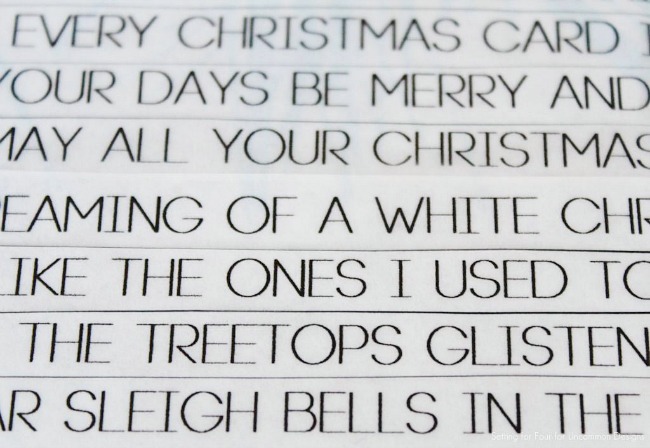 EVERY CHRISTMAS CARD I
YOUR DAYS BE MERRY AND
MAY ALL YOUR CHRISTMAS
EAMING OF A WHITE CHR
IKE THE ONES I USED TO
THE TREETOPS GLISTEN
AR SLEIGH BELLS IN THE
Setting for Four for Uncommon Designs